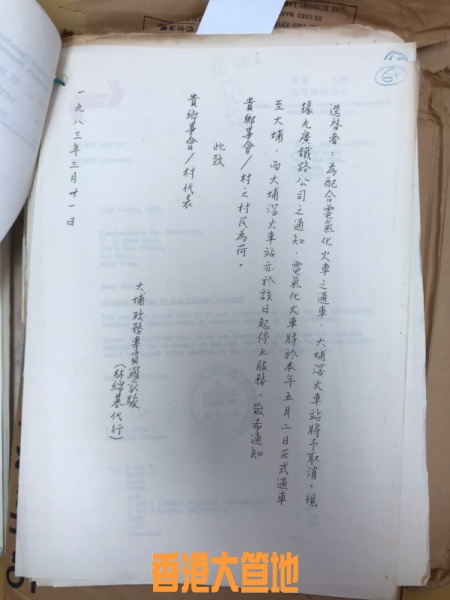 61
逕啓者：為配合電氣化火車之通車，大埔滘火車站將予取消。現
據九廣鐵路公司之通知，電氣化火車將於本年五月二日正式通車
至大埔，而大埔滘火車站亦於該日起停止服務。敬希通知
貴鄉事會/村之村民為荷。
此致
貴鄉事會/村代表
大埔政務專員羅家駿
(林紹基代行)
一九八三年三月廿一日
香港大笪地